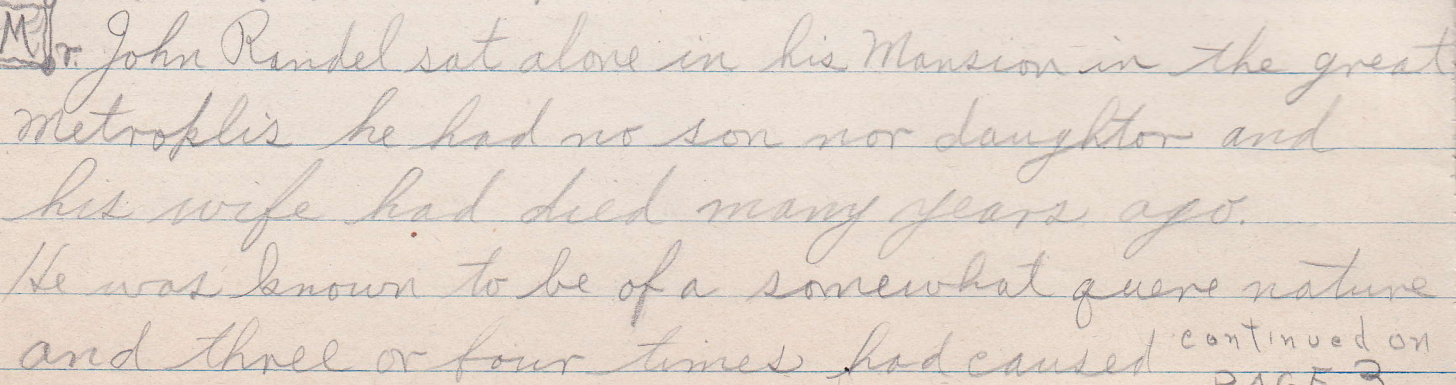 Mr. John Randel sat alone in his Mansion in the great
Metroplis he had no son nor daughtor and
his wife had died many years ago.
He was known to be of a somewhat quere nature
and three or four times had caused
continued on
PAGE 3